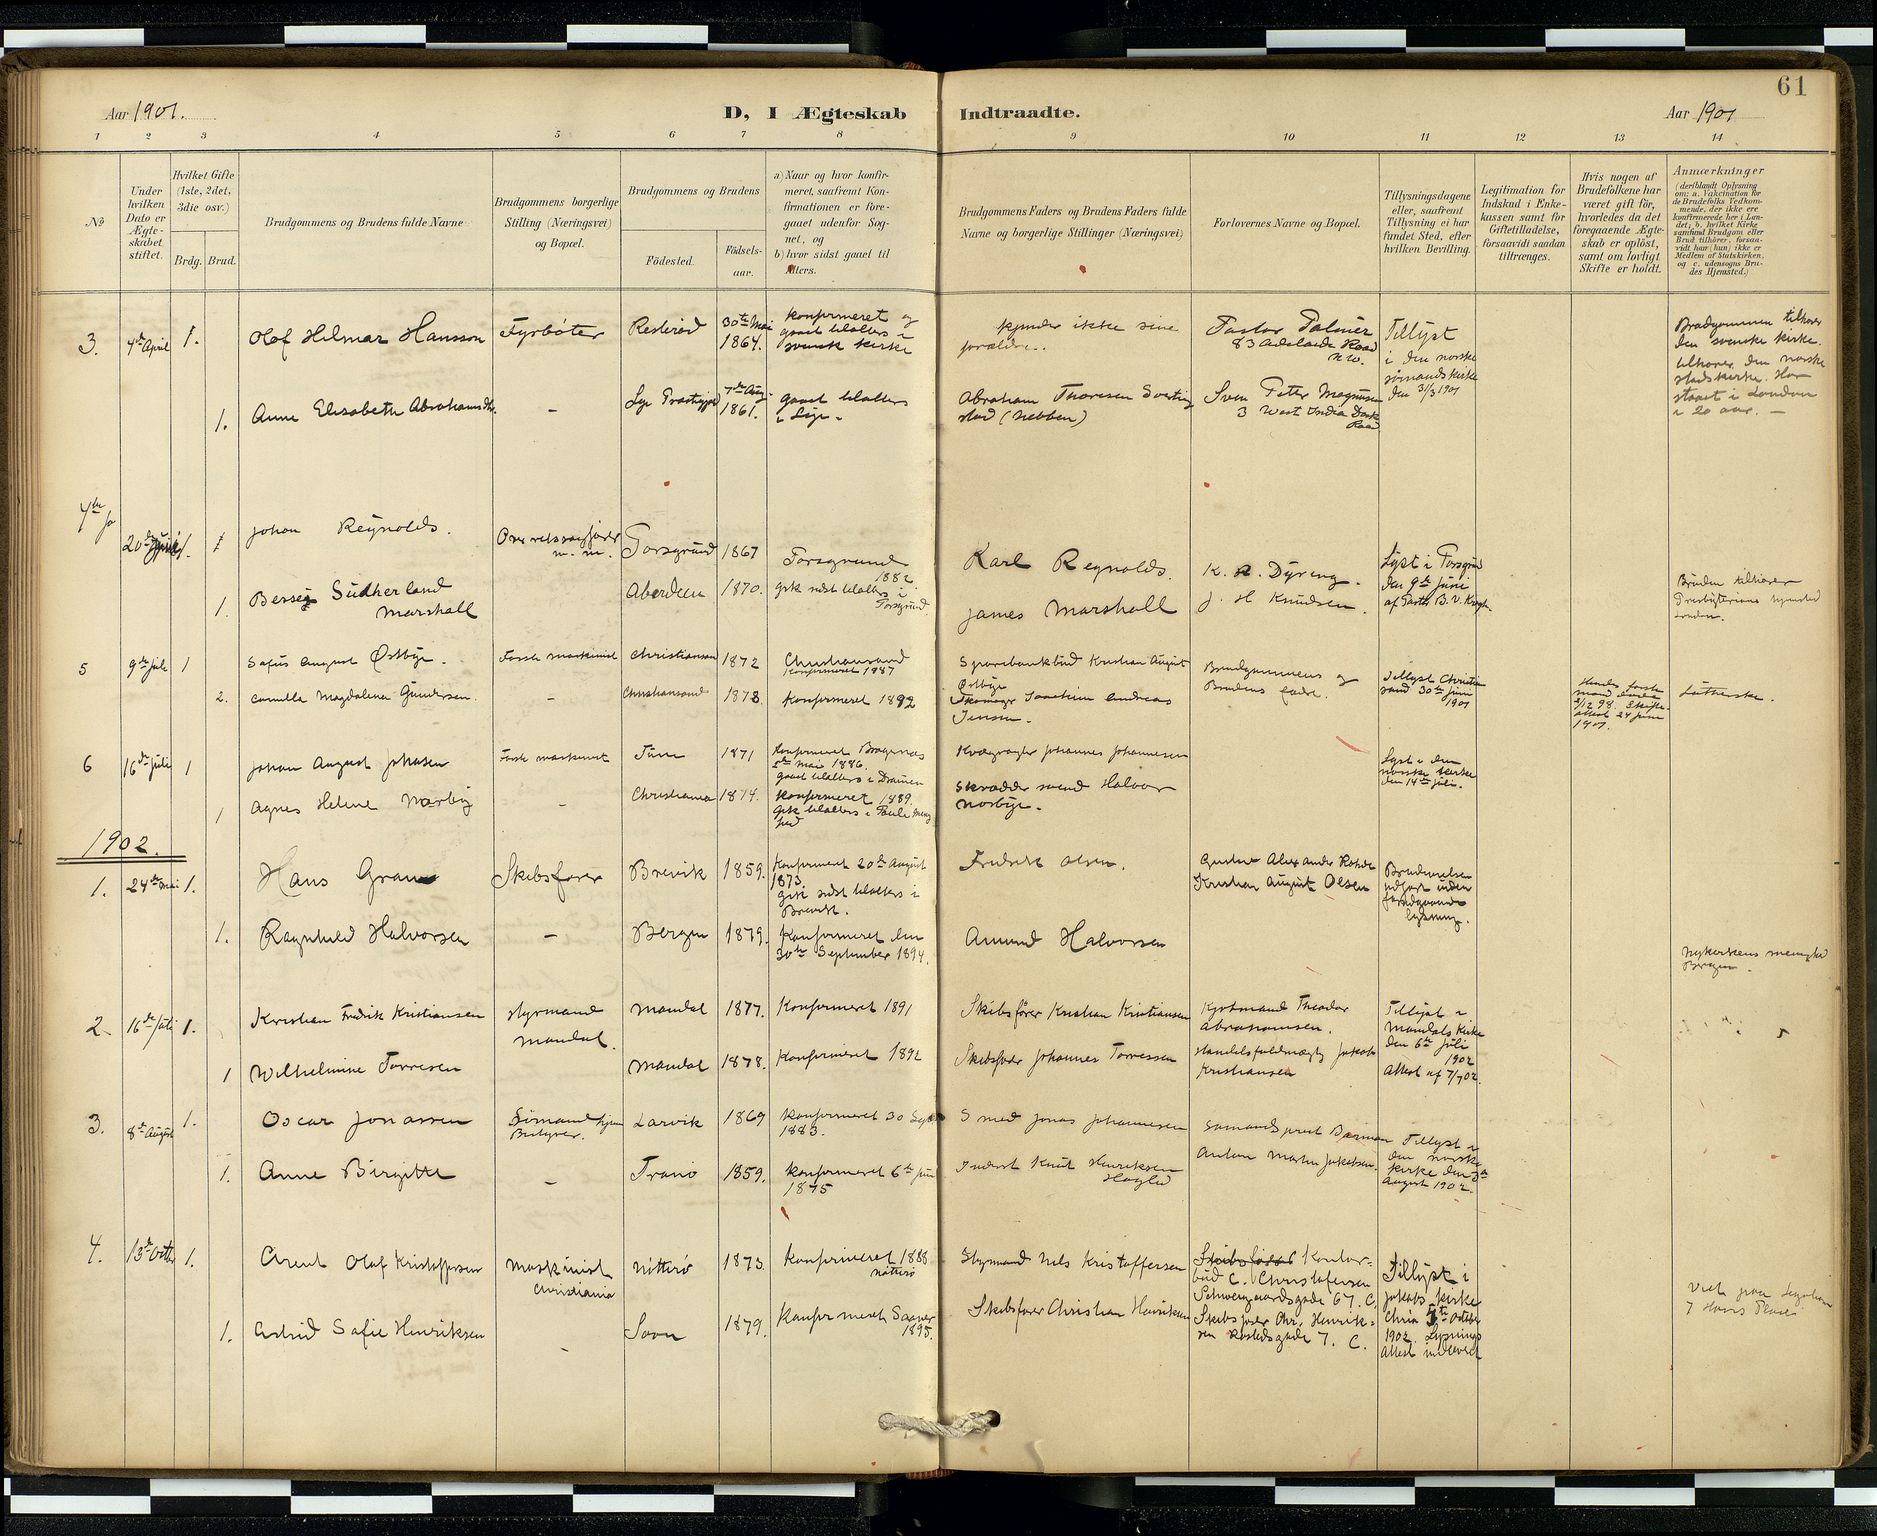 61
Aar 1901.
D, I Ægteskab Indtraadte.
Aar 1901
1 2 3 4 5 6 7 8 9 10 11 12 13 14
No
Under hvilken Dato er Ægteskabet stiftet.
Hvilket Gifte (1ste, 2det, 3die osv.)
Brdg. Brud.
Brudgommens og Brudens fulde Navne
Brudgommens borgerlige Stilling (Næringsvei) og Bopæl.
Brudgommens og Brudens
Fødested.
Fødselsaar.
a) Naar og hvor konfirmeret, saafremt Konfirmationen er foregaaet udenfor Sognet, og
b) hvor sidst gaaet til Alters.
Brudgommens Faders og Brudens Faders fulde Navne og borgerlige Stillinger (Næringsvei)
Forlovernes Navne og Bopæl.
Tillysningsdagene eller, saafremt Tillysning ei har fundet Sted, efter hvilken Bevilling.
Legitimation for Indskud i Enkekassen samt for Giftetilladelse, forsaavidt saadan tiltrænges.
Hvis nogen af Brudefolkene har været gift før, hvorledes da det foregaaende Ægteskab er opløst, samt om lovligt Skifte er holdt.
Anmærkninger
(deriblandt Oplysning om: a. Vakcination for de Brudefolks Vedkommende, der ikke ere konfirmerede her i Landet; b. hvilket Kirkesamfund Brudgom eller Brud tilhører, forsaavidt han (hun) ikke er Medlem af Statskirken, og c. udensogns Brudes Hjemsted.)
3. 4de April 1. Olof Hilmar Hansson Fyrbøter 30te Mai 1864. konfirmeret og gaaet tilalters i svensk kirke
kjender ikke sine forældre..
Pastor Palmer 83 Adelaide Road N.W.
Tillyst i den norske sømandskirke den 31/3 1901
Brudgommen tilhører den svenske kirke.
1. Anne Elisabeth - 7de Aug 1861. gaaet tilalters i Lye -
Abraham Thoresen
Sven Peter Magnusen 3 West India Dock Road
tilhører den norske statskirke. Har i London i 20 aar. -
4de
20de Juni 1. Johan Reynolds. Porsgrund 1867 Porsgrund 1882
Karl Reynolds.
K. Dyring.
Lyst i Porsgrund den 9de Juni
1. Bessy Sutherland Marshall Aberdeen 1870. gik sidst tilalters i Porsgrund.
James Marshall
J. H. Knudsen.
Bruden tilhører London.
5 9de juli 1 Sofus August Østbye. Første maskinist Christiansand 1872 Christiansand Konfirmeret 1887
Sparebankbud Kristian August Østbye
Brudgommens og Brudens fædre.
Tillyst Christiansand 30te juni 1901
2. Camilla Magdalena Gundersen. - Christiansand 1873 konfirmeret 1892
Skomager Joachim Andreas Jensen.
Hendes første mand døde 2/12 98. Skifteattest 24 juni 1901.
Lutherske.
6 16de juli 1 Johan August Johnsen Første maskinist 1871 konfirmeret Bragernæs Mai 1886. gaaet tilalters i Dramen
Johannes Johannesen
Lyst i den norske kirke den 14de juli.
1 Agnes Helene Nørby - Christiania 1874. konfirmeret 1889. gik tilalters i
Skrædder svend Halvor Norbye.
1902.
1. 24de Mai 1. Hans Gran Skibsfører Brevik 1859. Konfirmeret 20de August 1873. gik sidst tilalters i Brevik.
Fredrik Olsen.
Gustav Alexander
Kristian August Olsen
1. Ragnhild Halvorsen - Bergen 1879. Konfirmeret den 30te September 1894.
Amund Halvorsen
Nykirkens menighed Bergen.
2. 16de Juli 1. Kristian Fredrik Kristiansen Styrmand Mandal. Mandal 1877. Konfirmeret 1891
Skibsfører Kristian Kristiansen
Kjøbmand Theodor Abrahamsen.
Tillyst i Mandals kirke den 6te juli 1902 Attest af 7/7 02.
1 Wilhelmine Torresen Mandal 1878. Konfirmeret 1892
Skibsfører Johannes Torressen
Handelsfuldmægtig Jakob Kristiansen
3. 8de August 1. Oscar Jonassen Sømand Larvik 1869 konfirmeret 30 1883.
Smed Jonas Johannesen
Sømandsprest
Tillyst i den norske kirke den 3de August 1902.
1. Anne Birgitte - Tranø 1859. konfirmeret 6te juni 1875
Inderst Knut Henriksen
Anton Martin Jakobsen.
4. 13de Octbr 1. Arent Olaf Kristoffersen Maskinist Christiania Nøtterø 1873. konfirmeret 1888 Nøtterø
Styrmand Nils Kristoffersen
Kontorbud C. Christofersen Schweigaardsgade 67. C.
Tillyst i Jakobs kirke Chria 5te Octbr 1902. Lysningsattest indleveret
1. Astrid Sofie Henriksen - Soon 1879. Konfirmeret Saaner 1895.
Skibsfører Christian Henriksen
Skibsfører Chr. Henriksen 7. C.
Viet paa